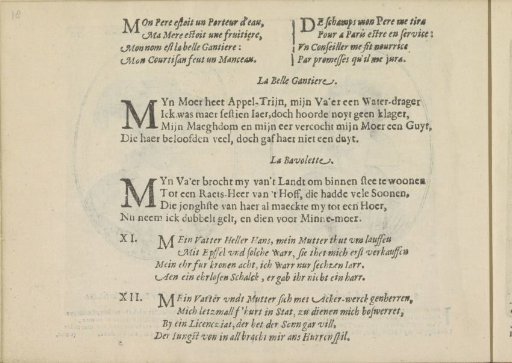 18
MOn Pere estoit un Porteur d'eau,
Ma Mere estoit une fruitiere,
Mon nom est la belle Gantiere:
Mon Courtisan feut un Manceau.
DEschamps mon Pere me tira
Pour a Paris estre en service:
Vn Conseiller me fit nourrice
Par promesses qu'il me jura.
La Belle Gantiere.
MYn Moer heet Appel-Trijn, mijn Va'er een Water-drager
Ick was maer sestien Iaer, doch hoorde noyt geen klager,
Mijn Maeghdom en mijn eer vercocht mijn Moer een Guyt,
Die haer beloofden veel, doch gaf haer niet een duyt.
La Bavolette.
MYn Va'er brocht my van't Landt om binnen stee te woonen
Tot een Raets-Heer van't Hoff, die hadde vele Soonen,
Die jonghste van haer al maeckte my tot een Hoer,
Nu neem ick dubbelt gelt, en dien voor Minne-moer.
XI.
MEin Vatter Heller Hans, mein Mutter thut vm lauffen
Mit Epffel vnd solche Warr, sie thet mich erst verkauffen
Mein ehr fur kronen acht, ich Warr nur sechzen Iarr.
Aen ein ehrlosen Schalck, er gab ihr nicht ein harr.
XII.
MEin Vatter vndt Mutter sich met Acker-werck genherren,
Mich letzmall f'hurt in Stat, zu dienen mich beswerret,
By ein Licenciat, der het der Senn gar vill,
Der Iungst von in all bracht mir ans Hurren stil.